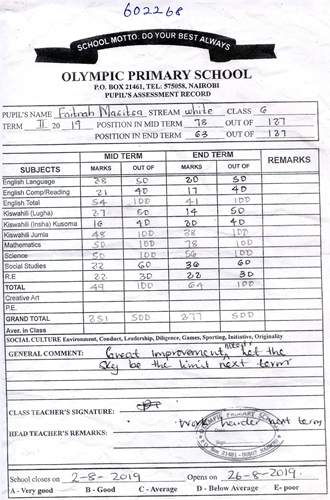 602268
SCHOOL MOTTO: DO YOUR BEST ALWAYS
OLYMPIC PRIMARY SCHOOL
P.O. BOX 21461, TEL: 575058, NAIROBI
PUPIL'S ASSESSMENT RECORD
PUPIL'S NAME Fatnah Masitsa STREAM white CLASS 6
TERM II 20 19 POSITION IN MID TERM 78 OUT OF 127
POSITION IN END TERM 63 OUT OF 127
MID TERM END TERM REMARKS
SUBJECTS MARKS OUT OF MARKS OUT OF
English Language 28 50 20 50
English Comp/Reading 21 40 17 40
English Total 54 100 41 100
Kiswahili (Lugha) 27 50 14 50
Kiswahili (Insha) Kusoma 16 40 20 40
Kiswahili Jumla 48 100 38 100
Mathematics 50 100 78 100
Science 50 100 56 100
Social Studies 22 60 36 60
R.E 22 30 22 30
TOTAL 49 100 64 100
Creative Art
P.E.
GRAND TOTAL 251 500 277 500
Aver. in Class
SOCIAL CULTURE Environment, Conduct, Leadership, Diligence, Games, Sporting, Initiative, Originality
GENERAL COMMENT: Great improvement, let the
sky be the limit next term
CLASS TEACHER'S SIGNATURE:
HEAD TEACHER'S REMARKS: work harder next term
OLYMPIC PRIMARY SCHOOL
P.O. Box 21461 - 00505
NAIROBI
School closes on 2-8-2019 Opens on 26-8-2019
A - Very good B - Good C - Average D - Below Average E- poor